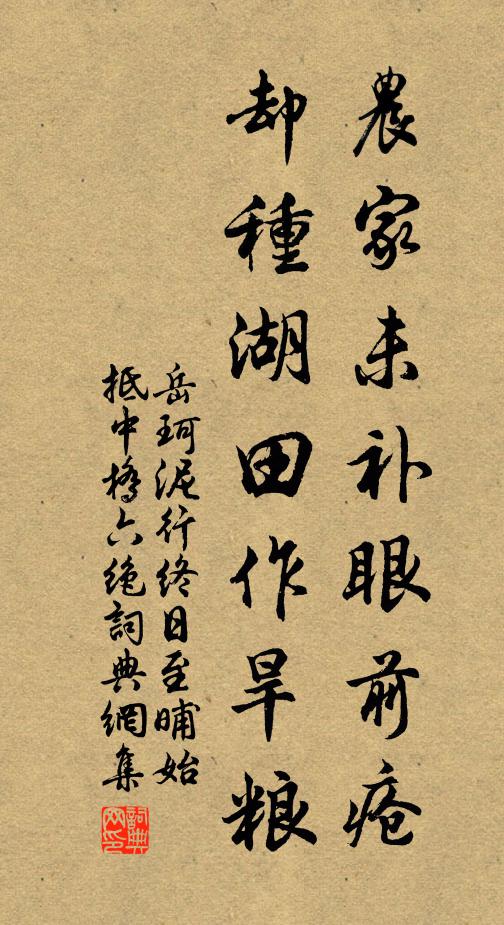 農家未补眼前瘡
却種湖田作旱粮
岳珂泥行终日至晡始
抵中橋六绝詞典網集
詞典网印